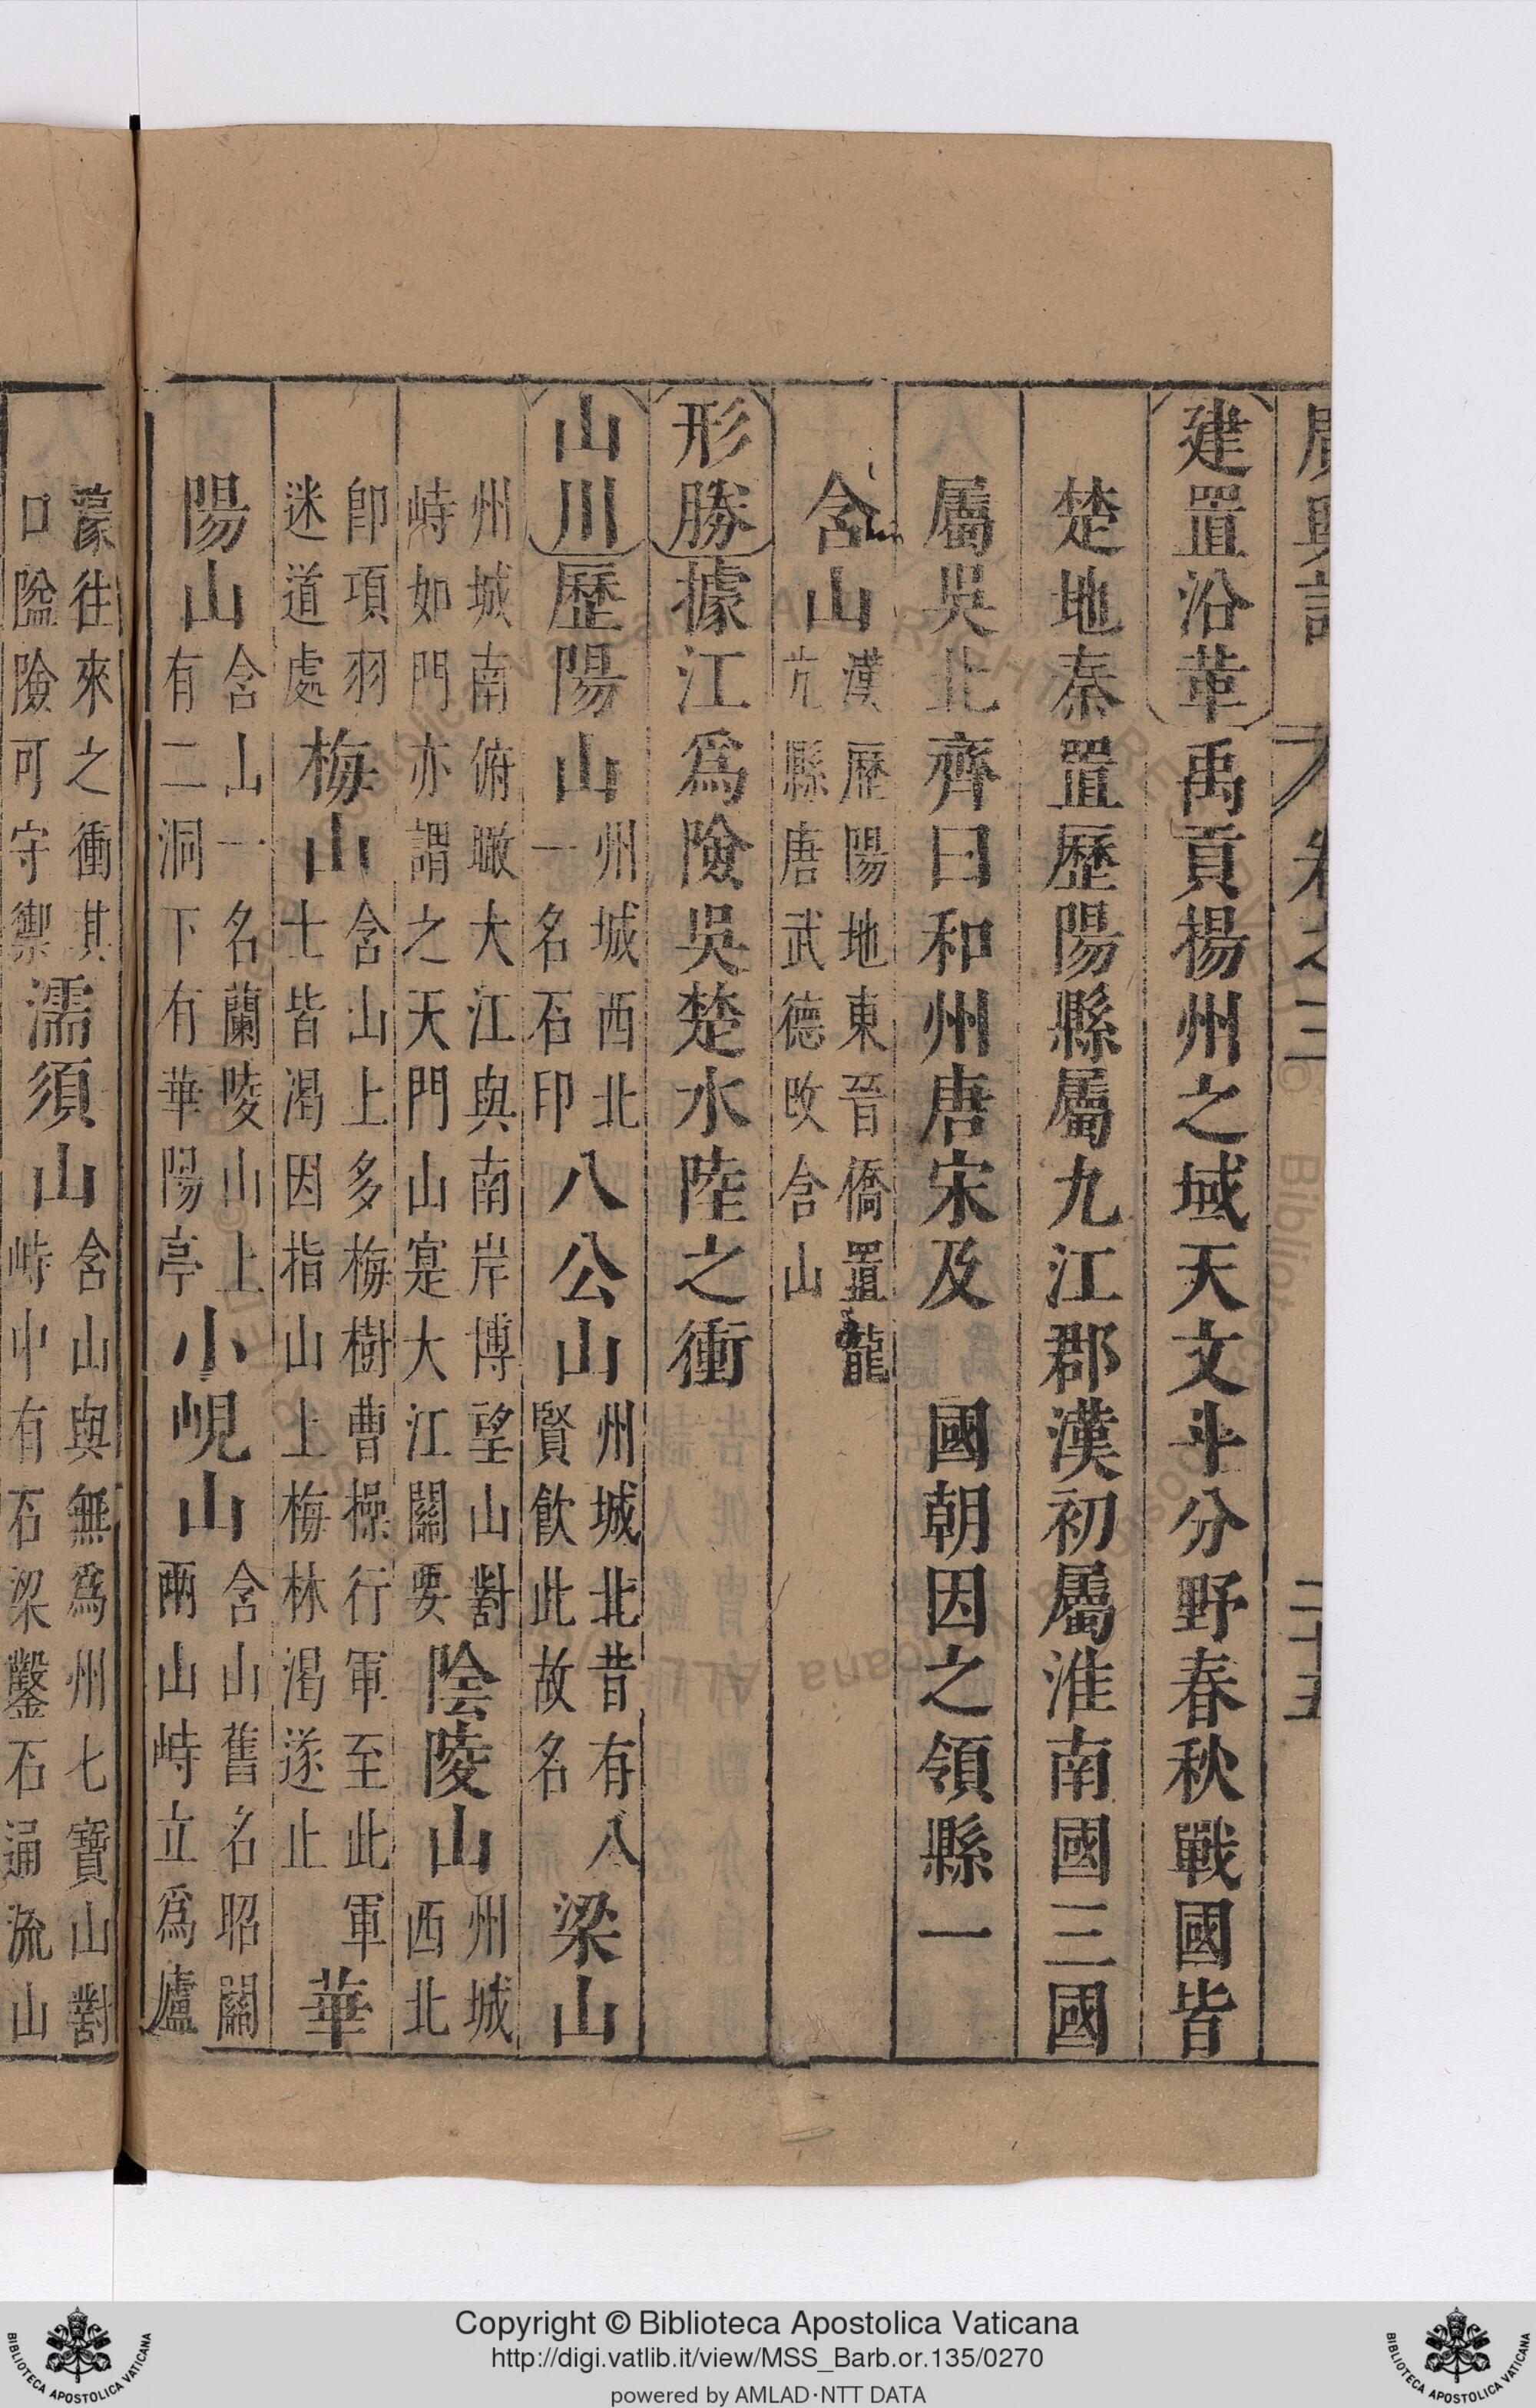 廣輿記 卷之三 二十五
建置沿革禹貢揚州之域天文斗分野春秋戰國皆
楚地秦置歷陽縣屬九江郡漢初屬淮南國三國
屬吳北齊曰和州唐宋及 國朝因之領縣一
含山漢歷陽地東晉僑置龍
亢縣唐武德改含山
形勝據江為險吳楚水陸之衝
山川歷陽山州城西北
一名石印八公山州城北昔有八
賢飲此故名梁山
州城南俯瞰大江與南岸博望山對
峙如門亦謂之天門山寔大江關要陰陵山州城
西北
即項羽
迷道處梅山含山上多梅樹曹操行軍至此軍
士皆渴因指山上梅林渴遂止華
陽山含山一名蘭陵山上
有二洞下有華陽亭小峴山含山舊名昭關
兩山峙立為廬
濠往來之衝其
口隘險可守禦濡須山含山與無為州七寶山對
峙中有石梁鑿石通流山
Copyright © Biblioteca Apostolica Vaticana
http://digi.vatlib.it/view/MSS_Barb.or.135/0270
powered by AMLAD·NTT DATA
BIBLIOTECA APOSTOLICA VATICANA
BIBLIOTECA APOSTOLICA VATICANA